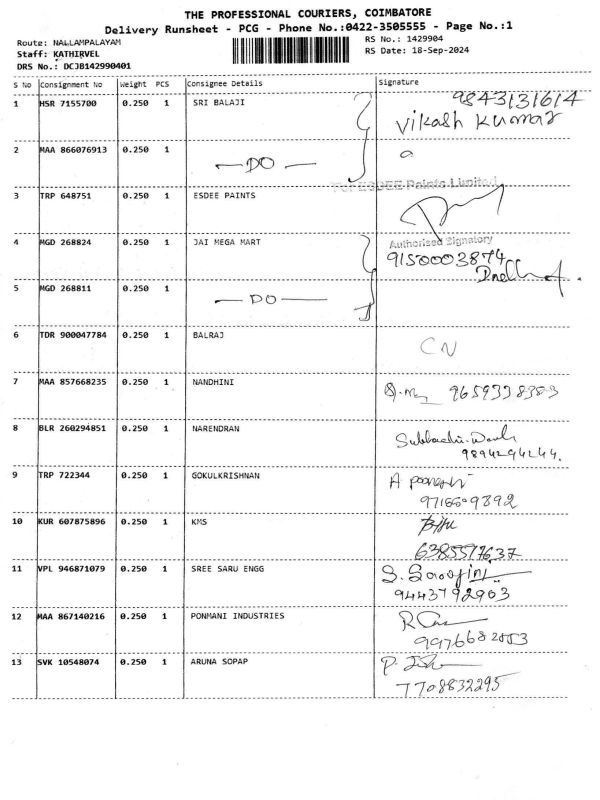 THE PROFESSIONAL COURIERS, COIMBATORE
Delivery Runsheet - PCG - Phone No.:0422-3505555 - Page No.:1
Route: NALLAMPALAYAM
RS No.: 1429904
Staff: KATHIRVEL
RS Date: 18-Sep-2024
DRS No.: DCJB142990401
S No Consignment No Weight PCS Consignee Details Signature
1 HSR 7155700 0.250 1 SRI BALAJI 9843131614
Vikash Kumar
2 MAA 866076913 0.250 1
DO
For ESDEE Paints Limited
3 TRP 648751 0.250 1 ESDEE PAINTS
Authorised Signatory
4 MGD 268824 0.250 1 JAI MEGA MART
9150003874
5 MGD 268811 0.250 1
DO
6 TDR 900047784 0.250 1 BALRAJ
CN
7 MAA 857668235 0.250 1 NANDHINI
9659338383
8 BLR 260294851 0.250 1 NARENDRAN
9894294244.
9 TRP 722344 0.250 1 GOKULKRISHNAN
A
10 KUR 607875896 0.250 1 KMS
6385517637
11 VPL 946871079 0.250 1 SREE SARU ENGG
S. Sarojini
9443792903
12 MAA 867140216 0.250 1 PONMANI INDUSTRIES
13 SVK 10548074 0.250 1 ARUNA SOPAP
7708832295